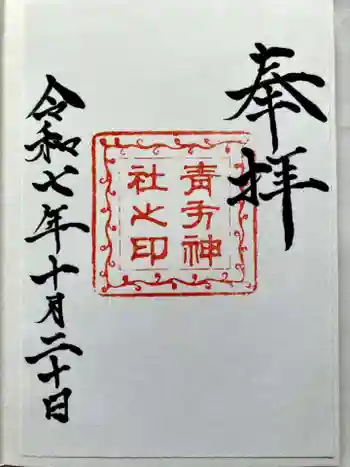 奉拝
青方神
社之印
令和七年十月二十日